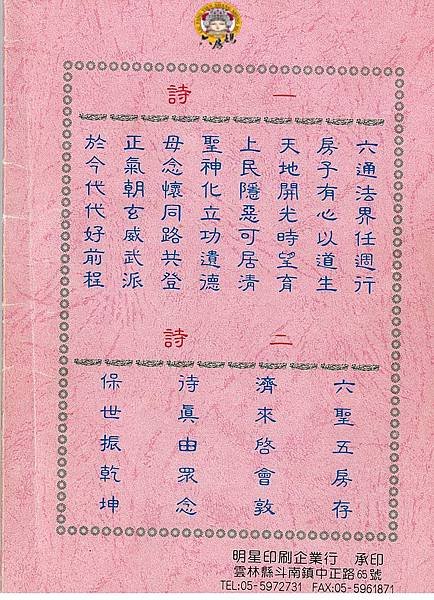 六房媽
詩一
六通法界任週行
房子有心以道生
天地開光時望育
上民隱惡可居清
聖神化立功遺德
毋念懷同路共登
正氣朝玄威武派
於今代代好前程
詩二
六聖五房存
濟來啓會敦
待眞由眾念
保世振乾坤
明星印刷企業行　承印
雲林縣斗南鎮中正路65號
TEL:05-5972731 FAX:05-5961871